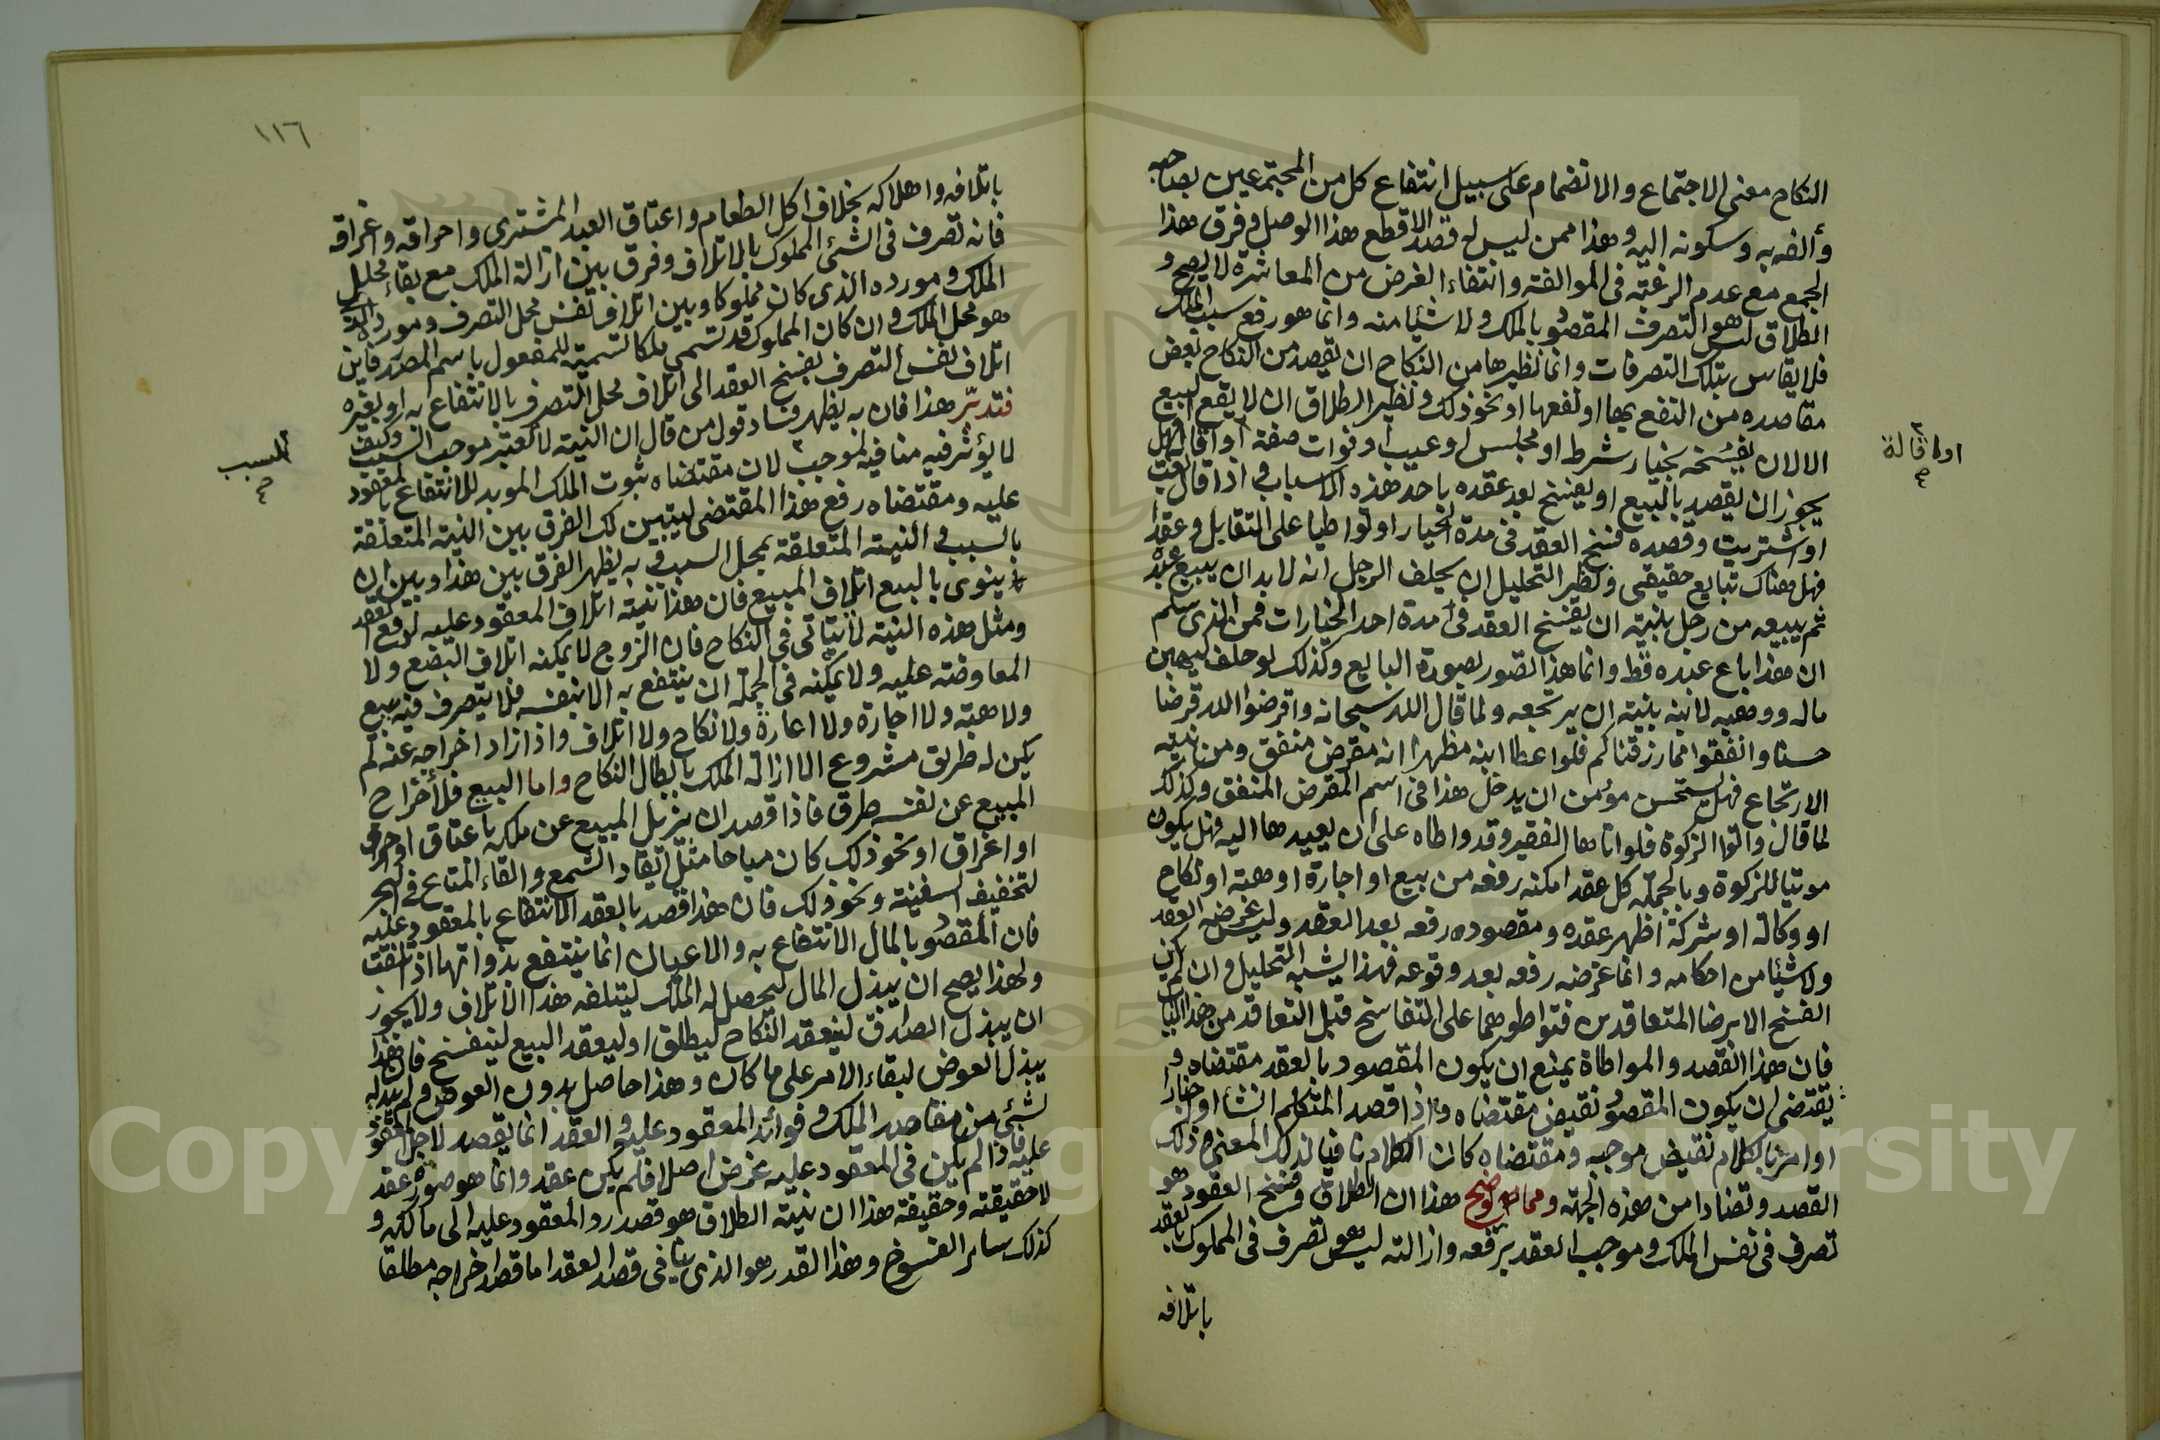 النكاح معنى الاجتماع والانضمام على سبيل انتفاع كل من المجتمعين بصاحبه
وألفه به وسكونه اليه وهذا ممن ليس له قصد الا قطع هذا الوصل وفرق هذا
الجمع مع عدم الرغبة فى الموالفة وانتفاء الغرض من المعاشرة لا يصح و
الطلاق ليس هو التصرف المقصود بالملك ولا شيئا منه وانما هو رفع سبب الملك
فلا يقاس بتلك التصرفات وانما نظيرها من النكاح ان يقصد من النكاح بعض
مقاصده من النفع بها او نفعها او نحو ذلك ونظير الطلاق ان لا يقع البيع
الا لان يفسخه بخيار شرط او مجلس او عيب او فوات صفة او اقالة فهل
يجوز ان يقصد بالبيع او يفسخ بعد عقده باحد هذه الاسباب واذا قال بعت
او اشتريت وقصده فسخ العقد فى مدة الخيار او تواطيا على التقايل وعقدا
فهل هناك تبايع حقيقى ونظير التحليل ان يحلف الرجل انه لابد ان يبيع عبده
ثم يبيعه من رجل بنية ان يفسخ العقد فى مدة احد الخيارات فمن الذى سلم
ان هذا باع عبده قط وانما هذا تصور بصورة البايع وكذلك لو حلف ليهبن
ماله ووهبه لابنه بنية ان يرتجعه ولما قال الله سبحانه واقرضوا الله قرضا
حسنا وانفقوا مما رزقناكم فلو اعطا ابنه مظهرا انه مقرض منفق ومن نيته
الارتجاع فهل يستحسن مؤمن ان يدخل هذا فى اسم المقرض المنفق وكذلك
لما قال واتوا الزكوة فلو اتاها الفقير وقد واطاه على ان يعيدها اليه فهل يكون
موتيا للزكوة وبالجملة كل عقد امكنه رفعه من بيع او اجارة او هبة او نكاح
او وكالة او شركة اظهر عقده ومقصوده رفعه بعد العقد وليس غرضه العقد
ولا شيئا من احكامه وانما غرضه رفعه بعد وقوعه فهذا يشبه التحليل وان لم يكن
الفسخ الا برضا المتعاقدين فتواطوهما على التفاسخ قبل التعاقد من هذا الباب
فان هذا القصد والمواطاة يمنع ان يكون المقصود بالعقد مقتضاه و
يقتضى ان يكون المقصود نقيض مقتضاه واذا قصد المتكلم انشاء او اخبارا
او امرا بالكلام نقيض موجبه ومقتضاه كان الكلام نافيا لذلك المعنى وذلك
القصد وتضادا من هذه الجهة ومما يوضح هذا ان الطلاق وفسخ العقود هو
تصرف فى نفس الملك وموجب العقد برفعه وازالته ليس هو تصرف فى المملوك بالعقد
باتلافه
او اقالة
صح
١١٦
باتلافه واهلاكه بخلاف اكل الطعام واعتاق العبد المشترى واحراقه واغراقه
فانه تصرف فى الشئ المملوك بالاتلاف وفرق بين ازالة الملك مع بقاء محل
الملك ومورده الذى كان مملوكا وبين اتلاف نفس محل التصرف ومورده الذى
هو محل الملك وان كان المملوك قد تسمى ملكا تسمية للمفعول باسم المصدر فاين
اتلاف نفس التصرف بفسخ العقد الى اتلاف محل التصرف بالانتفاع به او بغيره
فتدبر هذا فان به يظهر فساد قول من قال ان النية لا تعتبر موجب السبب وكيف
لا يؤثر فيه منافيه لموجب لان مقتضاه ثبوت الملك الموبد للانتفاع بالمعقود
عليه ومقتضاه رفع هذا المقتضى ليتبين لك الفرق بين النية المتعلقة
بالسبب والنية المتعلقة بمحل السبب وبه يظهر الفرق بين هذا وبين ان
ينوى بالبيع اتلاف المبيع فان هذا نية اتلاف المعقود عليه لا رفع العقد
ومثل هذه النية لا يتاتى فى النكاح فان الزوج لا يمكنه اتلاف البضع ولا
المعاوضة عليه ولا يمكنه فى الجملة ان ينتفع به الا بنفسه فلا يتصرف فيه ببيع
ولا هبة ولا اجارة ولا اعارة ولا نكاح ولا اتلاف واذا اراد اخراجه عنه لم
يكن له طريق مشروع الا ازالة الملك بابطال النكاح واما البيع فلاخراج
المبيع عن نفسه طرق فاذا قصد ان يزيل المبيع عن ملكه باعتاق او احراق
او اغراق او نحو ذلك كان مباحا مثل ايقاد الشمع والقاء المتاع فى البحر
لتخفيف السفينة ونحو ذلك فان هذا قصد بالعقد الانتفاع بالمعقود عليه
فان المقصود بالمال الانتفاع به والاعيان انما ينتفع بذواتها اذا تلفت
ولهذا يصح ان يبذل المال ليحصل له الملك ليتلفه هذا الاتلاف ولا يجوز
ان يبذل الصداق لينعقد النكاح ليطلق او ليعقد البيع ليفسخ فان هذا
يبذل العوض لبقاء الامر على ما كان وهذا حاصل بدون العوض ولم يبذله
لشئ من مقاصد الملك وفوائد المعقود عليه والعقد انما يقصد لاجل المعقود
عليه فاذا لم يكن فى المعقود عليه غرض اصلا فلم يكن عقد وانما هو صورة عقد
لا حقيقته وحقيقة هذا ان نية الطلاق هو قصد رد المعقود عليه الى مالكه و
كذلك ساير الفسوخ وهذا القدر هو الذى ينافى قصد العقد اما قصد اخراجه مطلقا
السبب
صح
Copyright © King Saud University